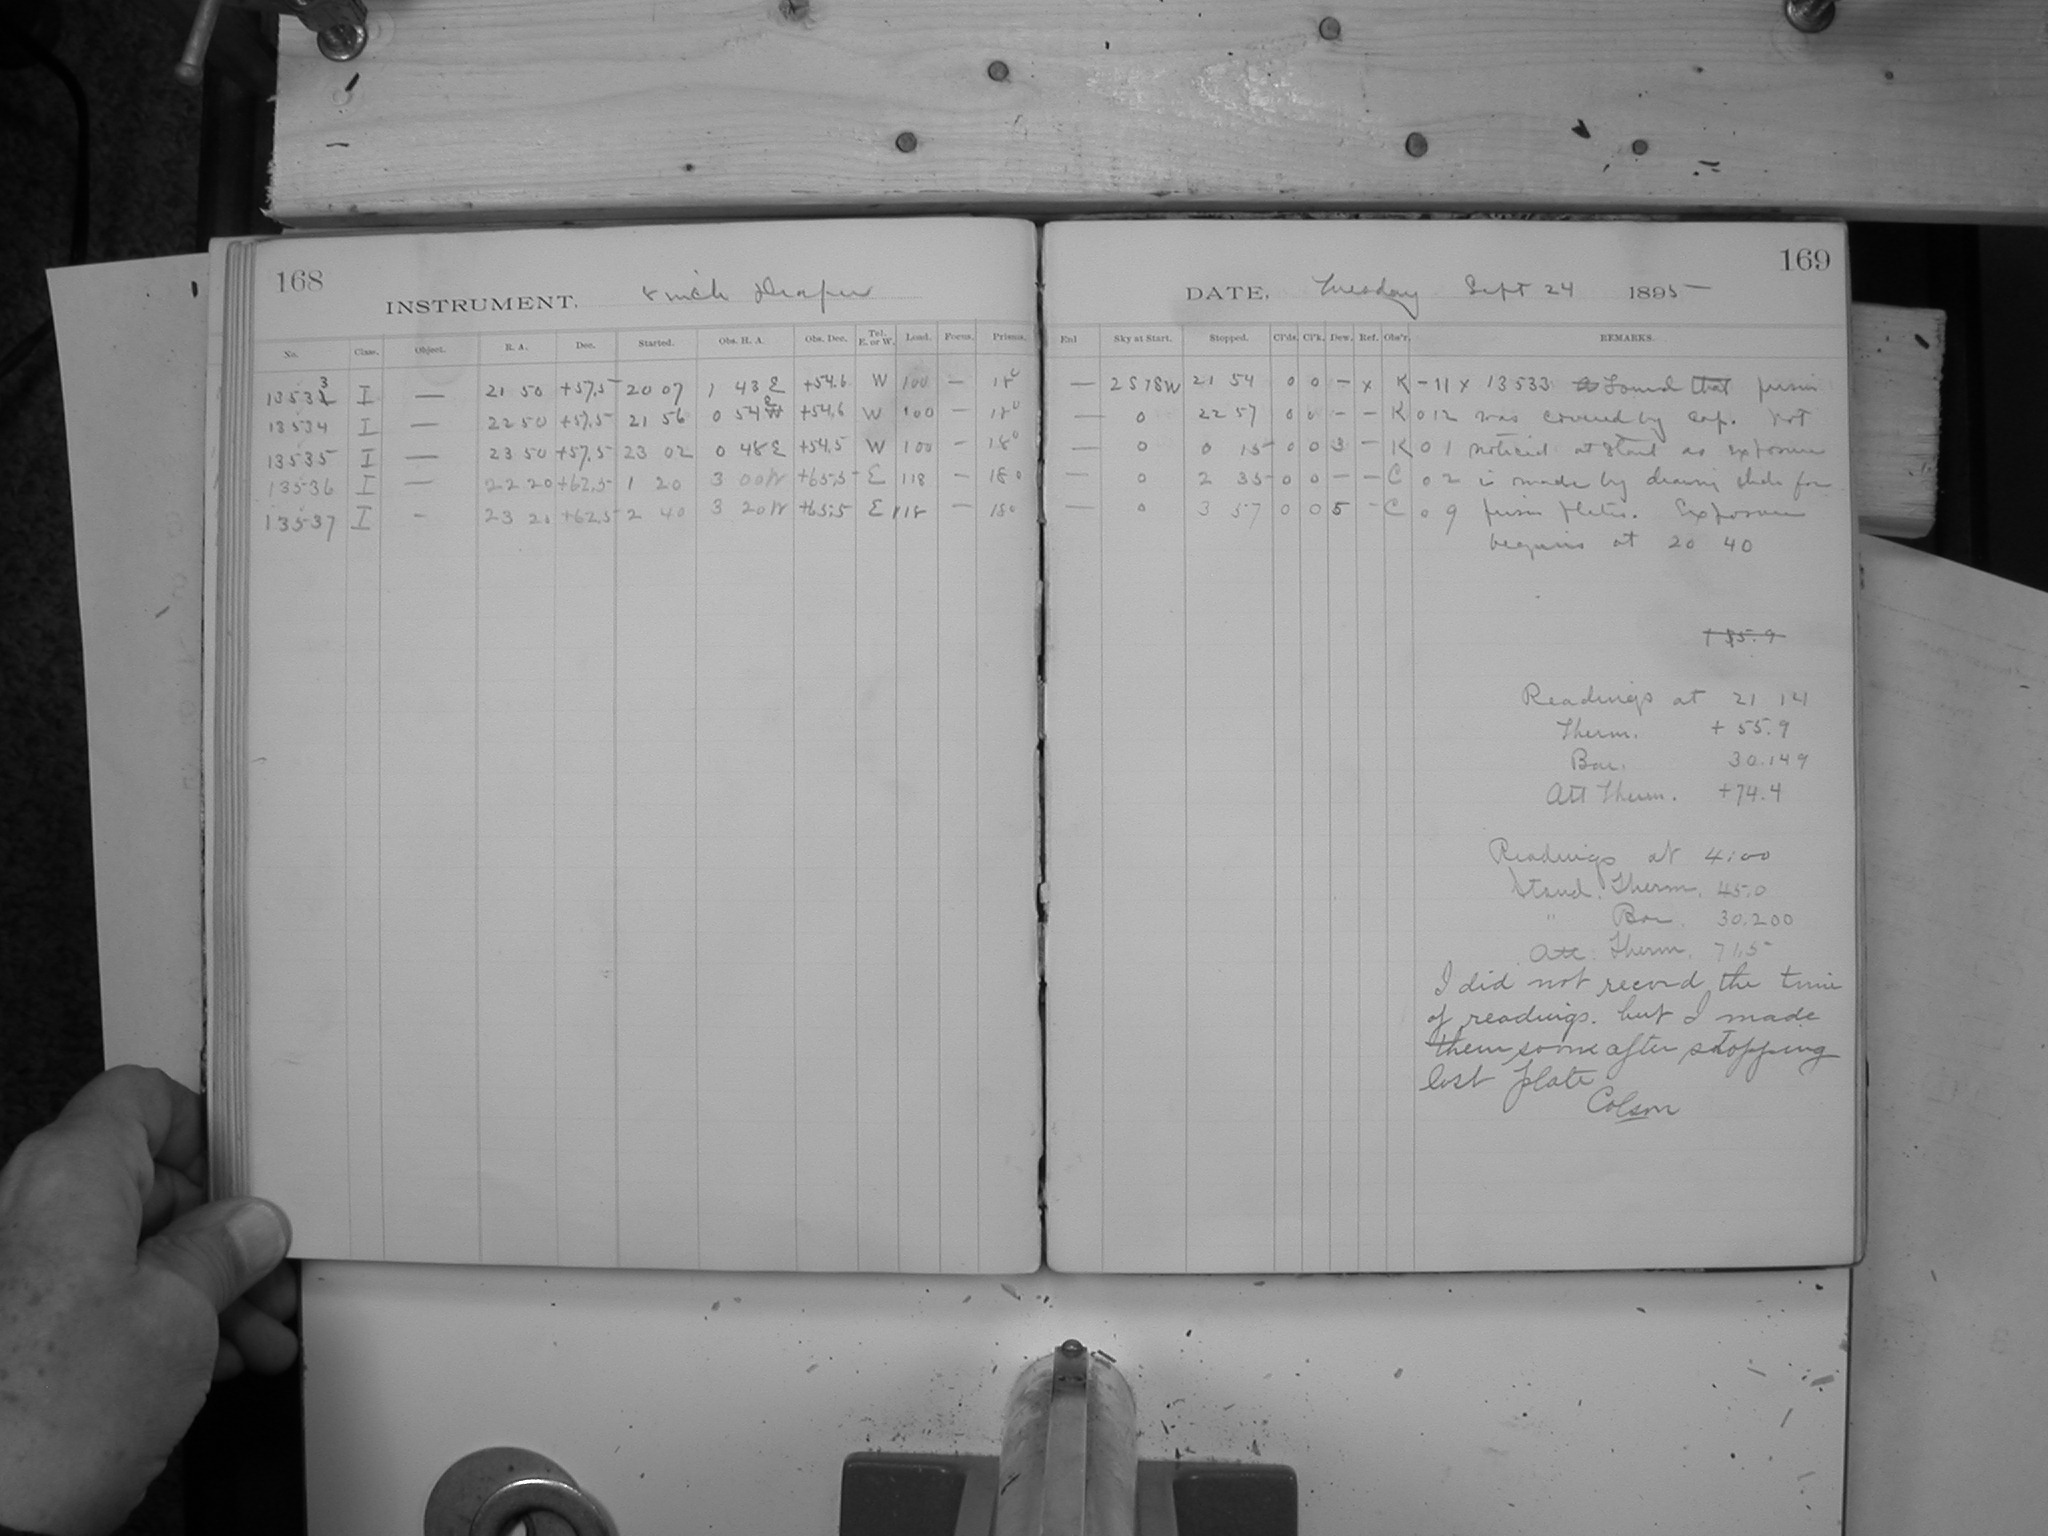 168
INSTRUMENT. 8 inch Draper
No. Class. Object. R. A. Dec. Started. Obs. H. A. Obs. Dec. Tel. E. or W. Load. Focus. Prisms.
13533 I — 21 50 +57.5 20 07 1 43 E +54.6 W 100 — 18°
13534 I — 22 50 +57.5 21 56 0 54 E +54.6 W 100 — 18°
13535 I — 23 50 +57.5 23 02 0 48 E +54.5 W 100 — 18°
13536 I — 22 20 +62.5 1 20 3 00 W +65.5 E 118 — 180
13537 I - 23 20 +62.5 2 40 3 20 W +65.5 E 118 — 180
169
DATE, Tuesday Sept 24 1895
Enl Sky at Start. Stopped. Cl'ds. Cl'k. Dew. Ref. Obs'r. REMARKS.
— 2S78W 21 54 0 0 — x K -11 x 13533 Found that prism
— 0 22 57 0 0 - - K 0 12 was covered by cap. Not
— 0 0 15 0 0 3 - K 0 1 noticed at start as exposure
— 0 2 35 0 0 — — C 0 2 is made by drawing slide for
— 0 3 57 0 0 5 - C 0 9 prism plates. Exposure
begins at 20 40
+55.9
Readings at 21 14
Therm. +55.9
Bar. 30.149
Att Therm. +74.4
Readings at 4:00
Stand. Therm. 45.0
" Bar. 30.200
Att. Therm. 71.5
I did not record the time
of readings. but I made
them soone after stopping
last plate
Colson